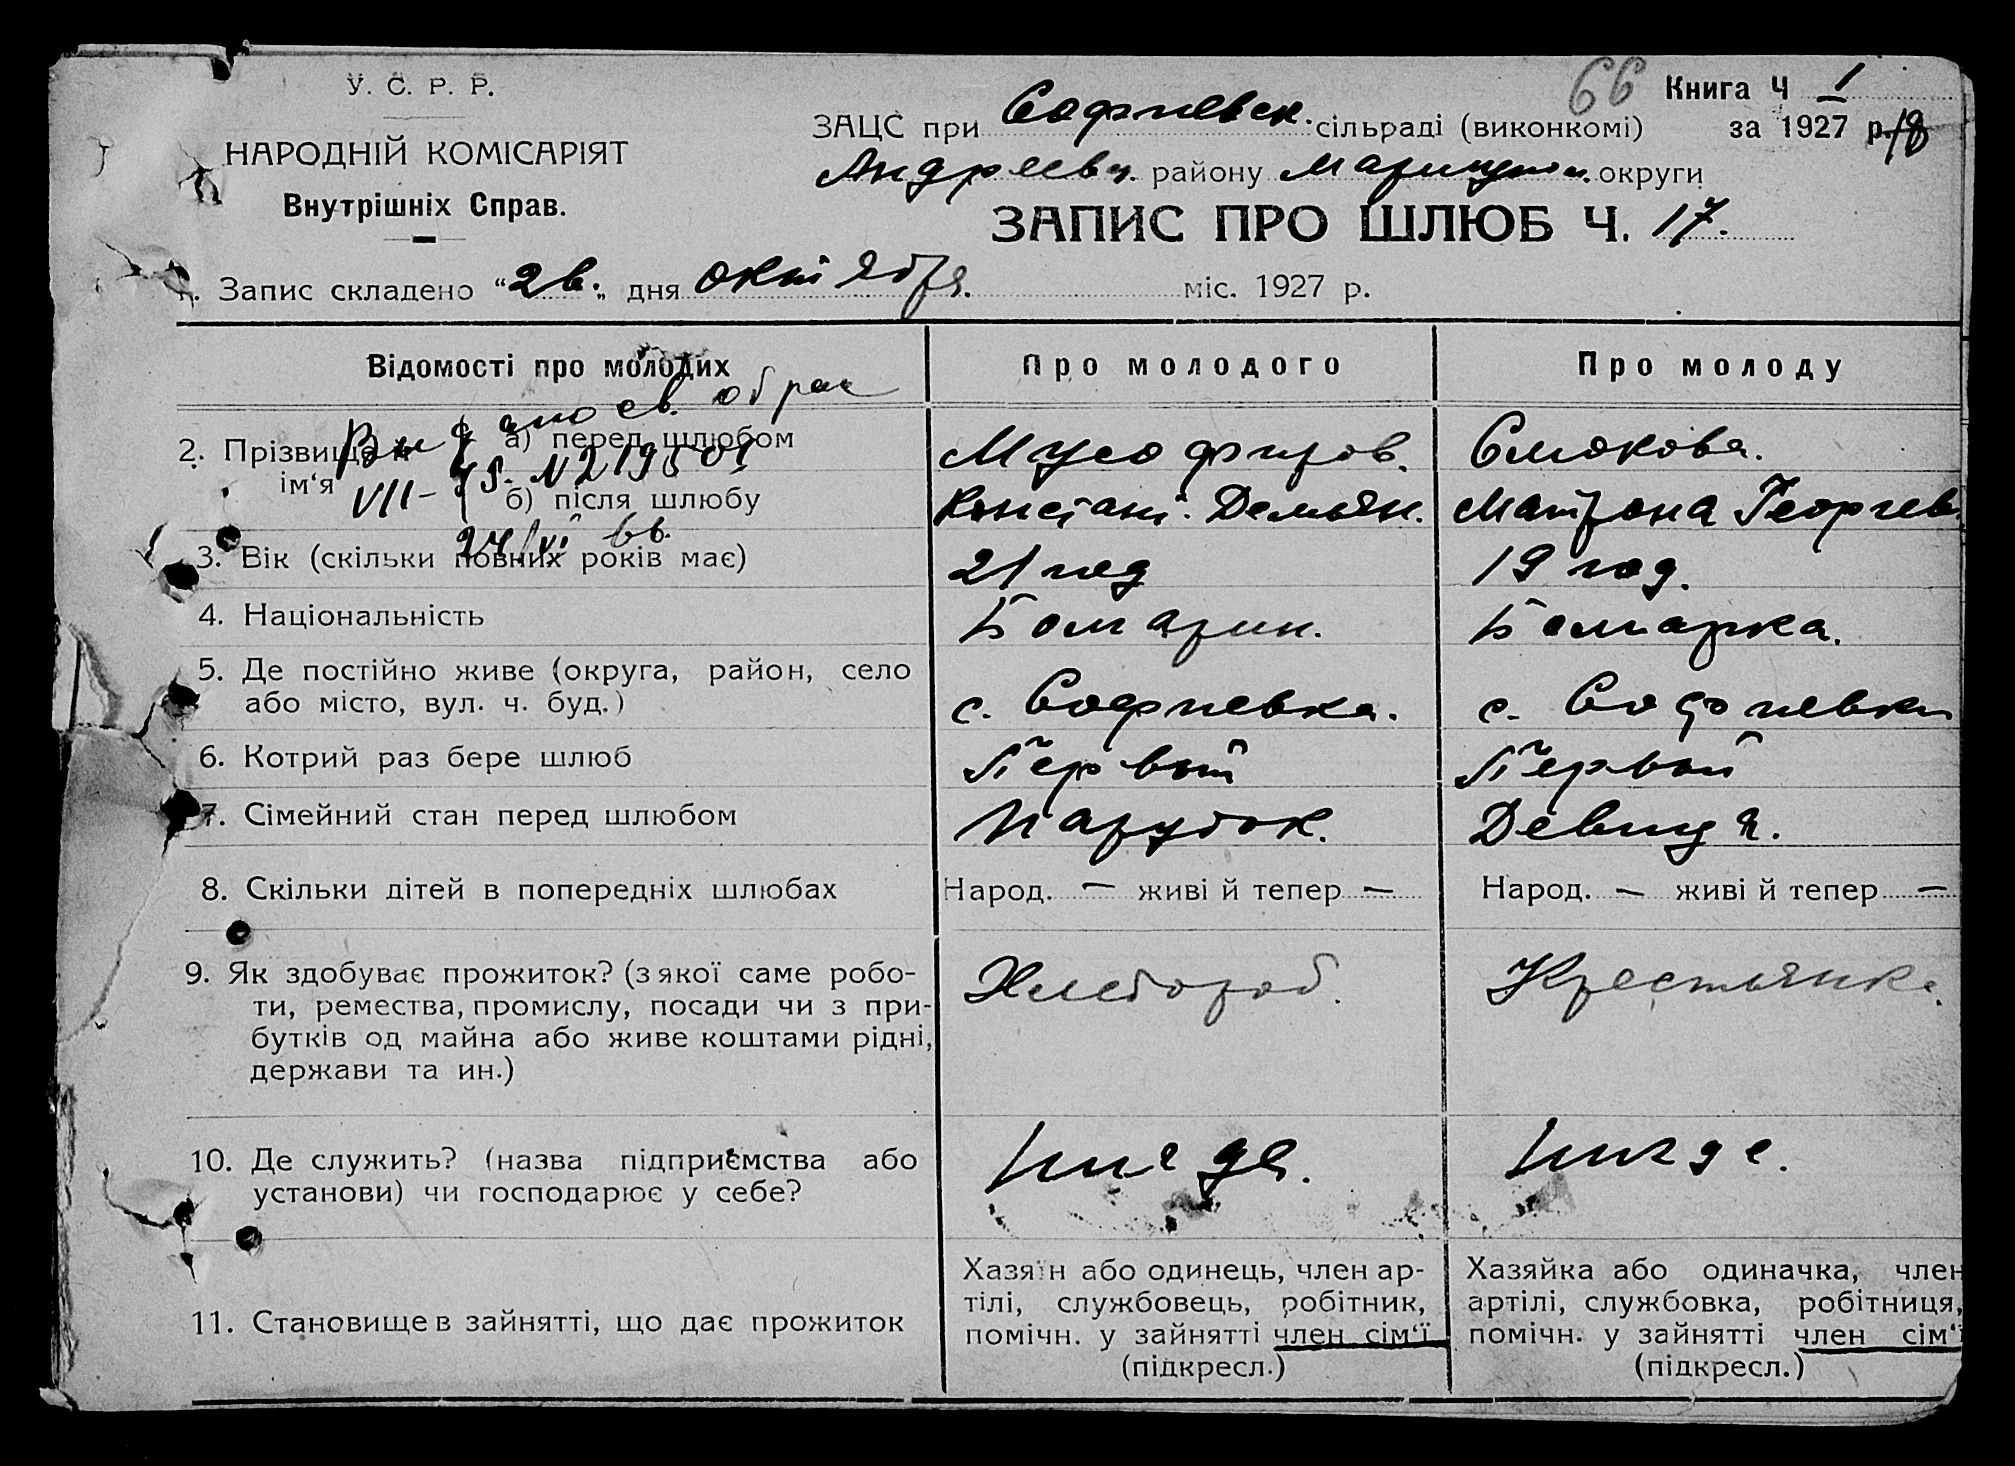 У. С. Р. Р.
НАРОДНІЙ КОМІСАРІЯТ
Внутрішніх Справ.
66
Книга Ч 1
за 1927 р./8
ЗАЦС при Софиевск. сільраді (виконкомі)
Андреевск. району Мариупол. округи
ЗАПИС ПРО ШЛЮБ Ч. 17.
1. Запис складено "26." дня октября. міс. 1927 р.
Відомості про молодих
Про молодого
Про молоду
2. Прізвище й ім'я
а) перед шлюбом
Мусофиров.
Смокова.
б) після шлюбу
Констант. Демьян.
Матрона Георгиев.
св. о брак
VII-
24/VI 66.
3. Вік (скільки повних років має)
21 год
19 год.
4. Національність
Болгарин.
Болгарка.
5. Де постійно живе (округа, район, село
або місто, вул. ч. буд.)
с. Софиевка.
с. Софиевки
6. Котрий раз бере шлюб
Первый
Первый
7. Сімейний стан перед шлюбом
Парубок.
Девица.
8. Скільки дітей в попередніх шлюбах
Народ. — живі й тепер —
Народ. — живі й тепер —
9. Як здобуває прожиток? (з якої саме робо-
ти, ремества, промислу, посади чи з при-
бутків од майна або живе коштами рідні,
держави та ин.)
Хлебороб.
Крестьянка.
10. Де служить? (назва підприємства або
установи) чи господарює у себе?
Нигде.
Нигде.
11. Становище в зайнятті, що дає прожиток
Хазяїн або одинець, член ар-
тілі, службовець, робітник,
помічн. у зайнятті член сім'ї
(підкресл.)
Хазяйка або одиначка, член
артілі, службовка, робітниця,
помічн. у зайнятті член сім'ї
(підкресл.)